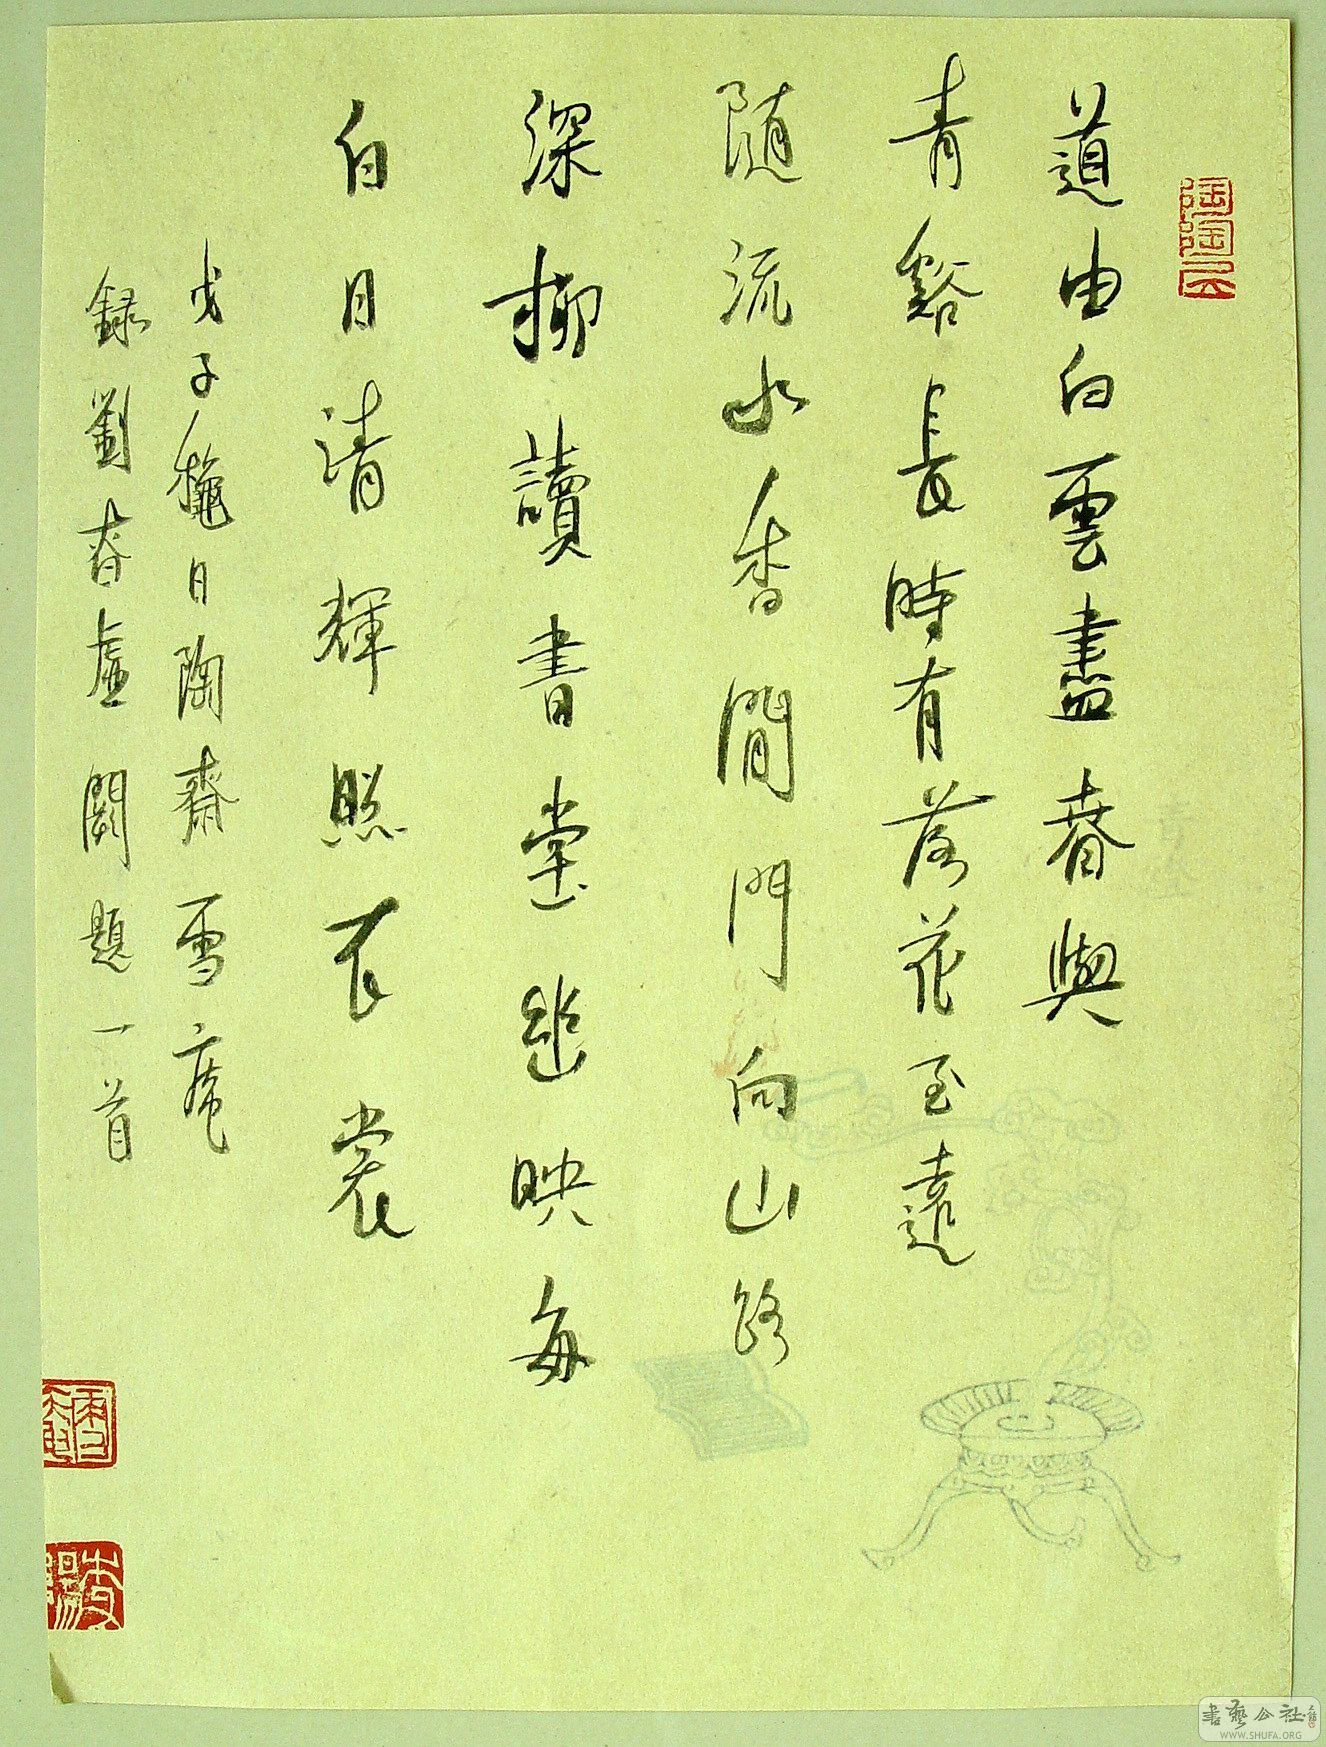 道由白雲盡春與
青谿長時有落花至遠
随流水香閒門向山路
深柳讀書堂幽映每
白日清輝照衣裳
戊子穐日陶齋雪庵
録劉昚虛闕題一首
書藝公社
WWW.SHUFA.ORG